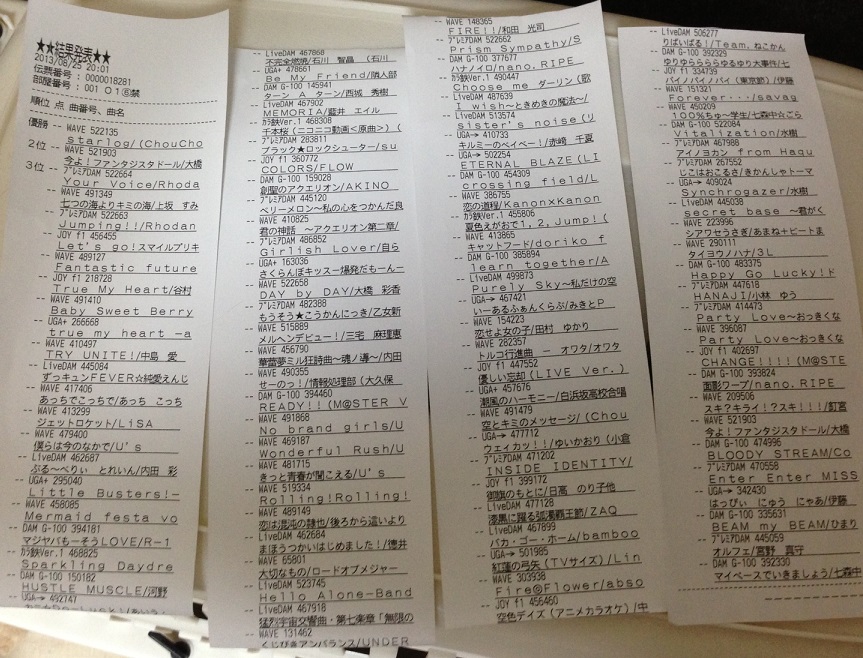 ★★結果発表★★
2013/08/25 20:01
伝票番号 : 0000018281
部屋番号 : 001 01⑧禁
順位 点 曲番号、曲名
優勝-- WAVE 522135
starlog/(ChouCho
2位 -- WAVE 521903
今よ!ファンタジスタドール/大橋
3位 -- プレミアDAM 522664
Your Voice/Rhoda
-- WAVE 491349
七つの海よりキミの海/上坂 すみ
-- プレミアDAM 522663
Jumping!!/Rhodan
-- JOY f1 456455
Let's go!スマイルプリキ
-- WAVE 489127
Fantastic future
-- JOY f1 218728
True My Heart/谷村
-- WAVE 491410
Baby Sweet Berry
-- UGA+ 266668
true my heart -a
-- WAVE 410497
TRY UNITE!/中島 愛
-- LiveDAM 445084
ずっキュンFEVER☆純愛えんじ
-- WAVE 417406
あっちでこっちで/あっち こっち
-- WAVE 413299
ジェットロケット/LiSA
-- WAVE 479400
僕らは今のなかで/U's
-- LiveDAM 462687
ぷる~べりぃ とれいん/内田 彩
-- UGA+ 295040
Little Busters!-
-- WAVE 458085
Mermaid festa vo
-- DAM G-100 394181
マジヤバもーそうLOVE/R-1
-- カラ鉄Ver.1 468825
Sparkling Daydre
-- DAM G-100 150182
HUSTLE MUSCLE/河野
-- UGA→ 492747
-- LiveDAM 467868
不完全燃焼/石川 智晶 (石川
-- UGA+ 478661
Be My Friend/隣人部
-- DAM G-100 145941
ターン A ターン/西城 秀樹
-- LiveDAM 467902
MEMORIA/藍井 エイル
-- カラ鉄Ver.1 468308
千本桜(ニコニコ動画<原曲>)(
-- プレミアDAM 283811
ブラック★ロックシューター/su
-- JOY f1 360772
COLORS/FLOW
-- DAM G-100 159028
創聖のアクエリオン/AKINO
-- プレミアDAM 445120
ベリーメロン~私の心をつかんだ良
-- WAVE 410825
君の神話 ~アクエリオン第二章/
-- プレミアDAM 486852
Girlish Lover/自ら
-- UGA+ 163036
さくらんぼキッス~爆発だもーん~
-- WAVE 522658
DAY by DAY/大橋 彩香
-- プレミアDAM 482388
もうそう★こうかんにっき/乙女新
-- WAVE 515889
メルヘンデビュー!/三宅 麻理恵
-- WAVE 456790
華蕾夢ミル狂詩曲~魂ノ導~/内田
-- WAVE 490355
せーのっ!/情報処理部(大久保
-- DAM G-100 394460
READY!!(M@STER V
-- WAVE 491868
No brand girls/U
-- WAVE 469187
Wonderful Rush/U
-- WAVE 481715
きっと青春が聞こえる/U's
-- WAVE 519334
Rolling!Rolling!
-- WAVE 489149
恋は混沌の隷也/後ろから這いより
-- LiveDAM 462684
まほうつかいはじめました!/徳井
-- WAVE 65801
大切なもの/ロードオブメジャー
-- LiveDAM 523745
Hello Alone-Band
-- LiveDAM 467918
猛烈宇宙交響曲・第七楽章「無限の
-- WAVE 131462
くじびきアンバランス/UNDER
-- WAVE 148365
FIRE!!/和田 光司
-- プレミアDAM 522662
Prism Sympathy/S
-- DAM G-100 377677
ハナノイロ/nano.RIPE
-- カラ鉄Ver.1 490447
Choose me ダーリン(歌
-- LiveDAM 487639
I wish~ときめきの魔法~/
-- LiveDAM 513574
sister's noise(リ
-- UGA→ 410733
キルミーのベイベー!/赤﨑 千夏
-- UGA→ 502254
ETERNAL BLAZE(LI
-- DAM G-100 454309
crossing field/L
-- WAVE 386755
恋の道程/Kanon×Kanon
-- カラ鉄Ver.1 455806
夏色えがおで1,2,Jump!(
-- WAVE 413865
キャットフード/doriko f
-- DAM G-100 385894
learn together/A
-- LiveDAM 499873
Purely Sky~私だけの空
-- UGA→ 467421
いーあるふぁんくらぶ/みきとP
-- WAVE 154223
恋せよ女の子/田村 ゆかり
-- WAVE 282357
トルコ行進曲 - オワタ/オワタ
-- JOY f1 447552
優しい忘却(LIVE Ver.)
-- UGA+ 457676
潮風のハーモニー/白浜坂高校合唱
-- WAVE 491479
空とキミのメッセージ/(Chou
-- UGA→ 477712
ウェイカッ!!/ゆいかおり(小倉
-- プレミアDAM 471202
INSIDE IDENTITY/
-- JOY f1 399172
御旗のもとに/日高 のり子他
-- LiveDAM 477128
漆黒に躍る弧濁覇王節/ZAQ
-- LiveDAM 467899
バカ・ゴー・ホーム/bamboo
-- UGA→ 501985
紅蓮の弓矢(TVサイズ)/Lin
-- WAVE 303938
Fire◎Flower/abso
-- JOY f1 456460
空色デイズ(アニメカラオケ)/中
-- LiveDAM 506277
りばいばる!/Team.ねこかん
-- DAM G-100 392329
ゆりゆららららゆるゆり大事件/七
-- JOY f1 334739
パイノパイノパイ(東京節)/伊藤
-- WAVE 151321
Forever.../savag
-- WAVE 450209
100%ちゅ~学生/七森中☆ごら
-- DAM G-100 522084
Vitalization/水樹
-- プレミアDAM 467988
アイノヨカン from Haqu
-- プレミアDAM 267552
じこはおこるさ/きかんしゃトーマ
-- UGA→ 409024
Synchrogazer/水樹
-- LiveDAM 445038
secret base ~君がく
-- WAVE 223996
シアワセうさぎ/あまね+ビートま
-- WAVE 290111
タイヨウノハナ/3L
-- DAM G-100 483375
Happy Go Lucky!ド
-- プレミアDAM 447618
HANAJI/小林 ゆう
-- プレミアDAM 414473
Party Love~おっきくな
-- WAVE 396087
Party Love~おっきくな
-- JOY f1 402697
CHANGE!!!!(M@STE
-- DAM G-100 393824
面影ワープ/nano.RIPE
-- WAVE 209506
スキ?キライ!?スキ!!!/釘宮
-- WAVE 521903
今よ!ファンタジスタドール/大橋
-- DAM G-100 474996
BLOODY STREAM/Co
-- プレミアDAM 470558
Enter Enter MISS
-- UGA→ 342430
はっぴぃ にゅう にゃあ/伊藤
-- DAM G-100 335631
BEAM my BEAM/ひまり
-- プレミアDAM 445059
オルフェ/宮野 真守
-- DAM G-100 392330
マイペースでいきましょう/七森中